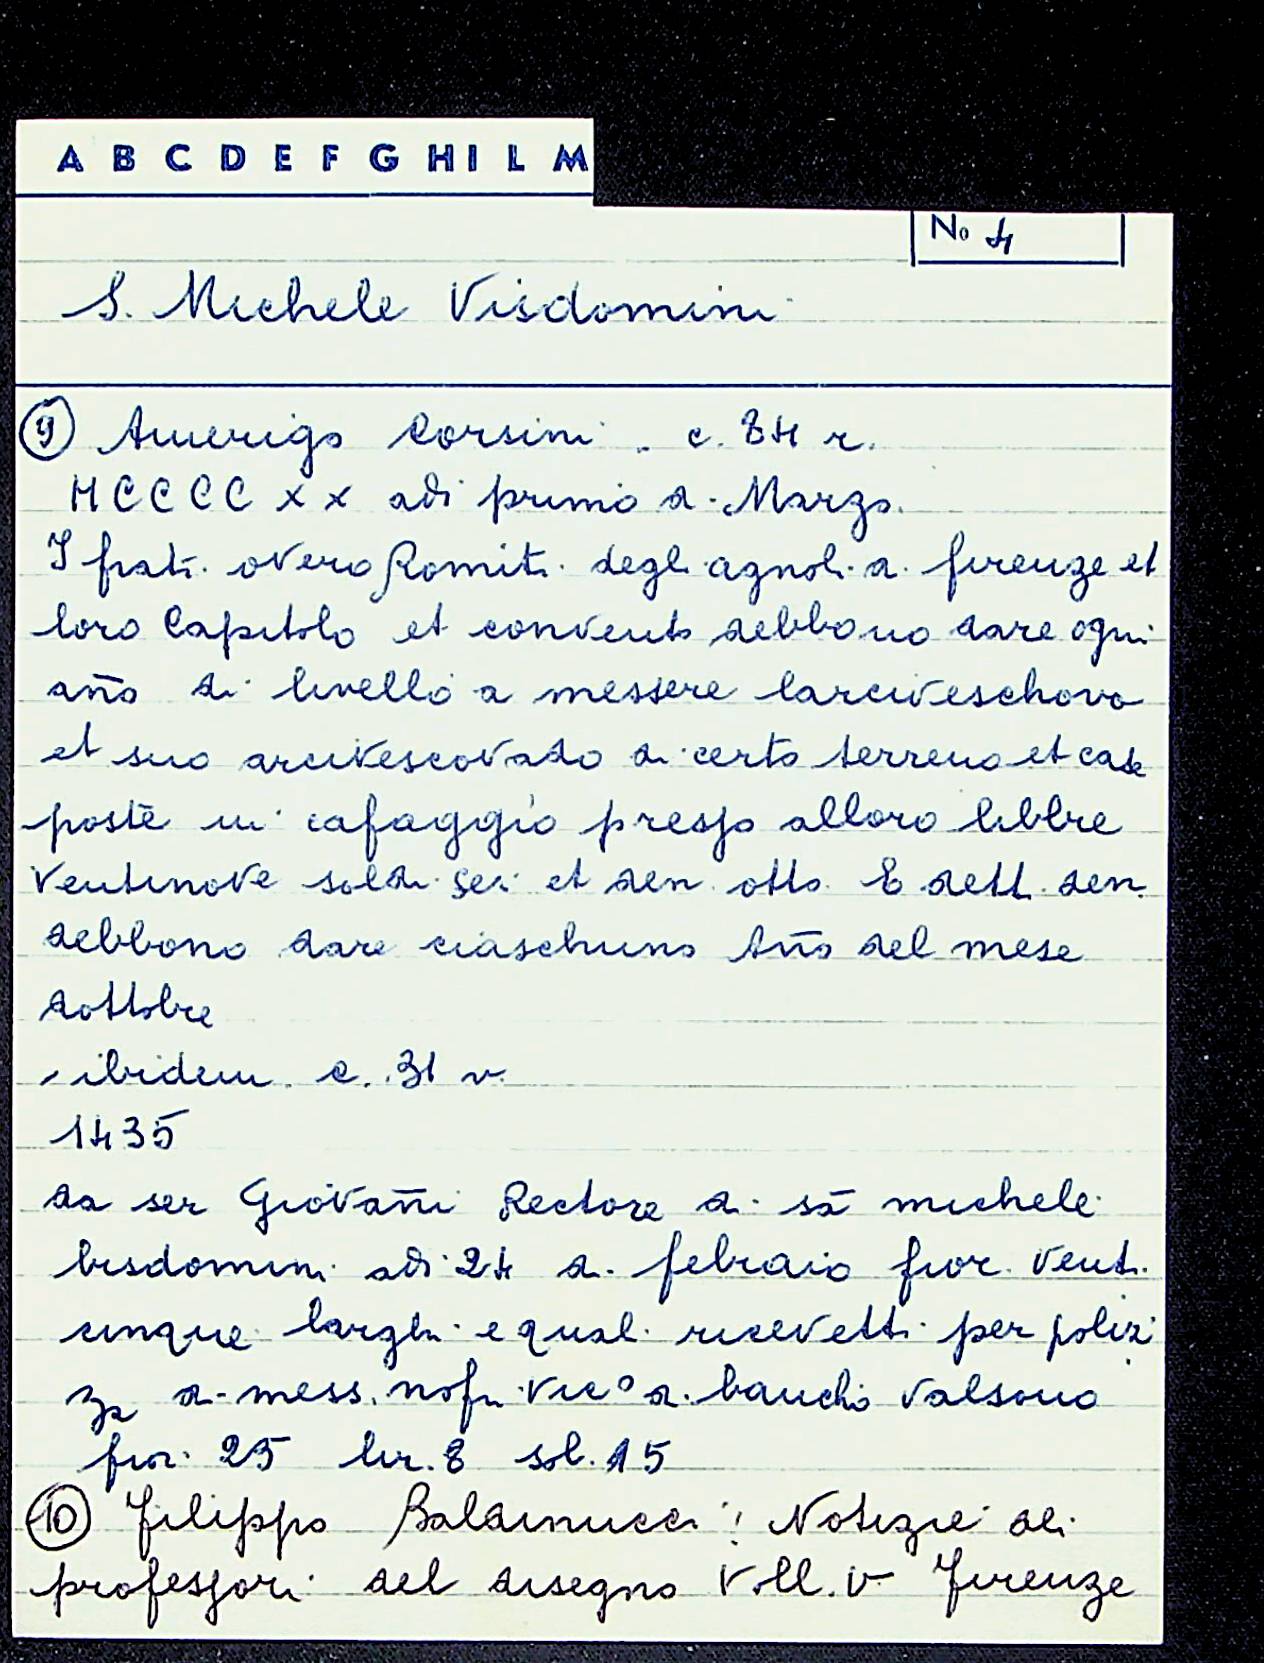 A B C D E F G H I L M
No 4
S. Michele Visdomini
9 Amerigo Corsini. c. 84 r.
MCCCCXX adi primo di Marzo.
I frati overo Romiti degli agnoli di firenze et
loro Capitolo et convento debbono dare ogni
año di livello a messere larciveschovo
et suo arcivescovado di certo terreno et case
poste in cafaggio presso alloro libbre
ventinove soldi sei et den otto. E detti den.
debbono dare ciaschuno Año del mese
dottobre
ibidem. c. 31 v.
1435
da ser Giovañi Rectore di sā michele
bisdomini adi 24 di febraio fior. venti
cinque larghi e quali ricevetti per poliz
za di mess. nofri vicº di bancho valsono
fior. 25 lir. 8 sol. 15
10 Filippo Baldinucci: Notizie dei
professori del disegno Voll. V Firenze